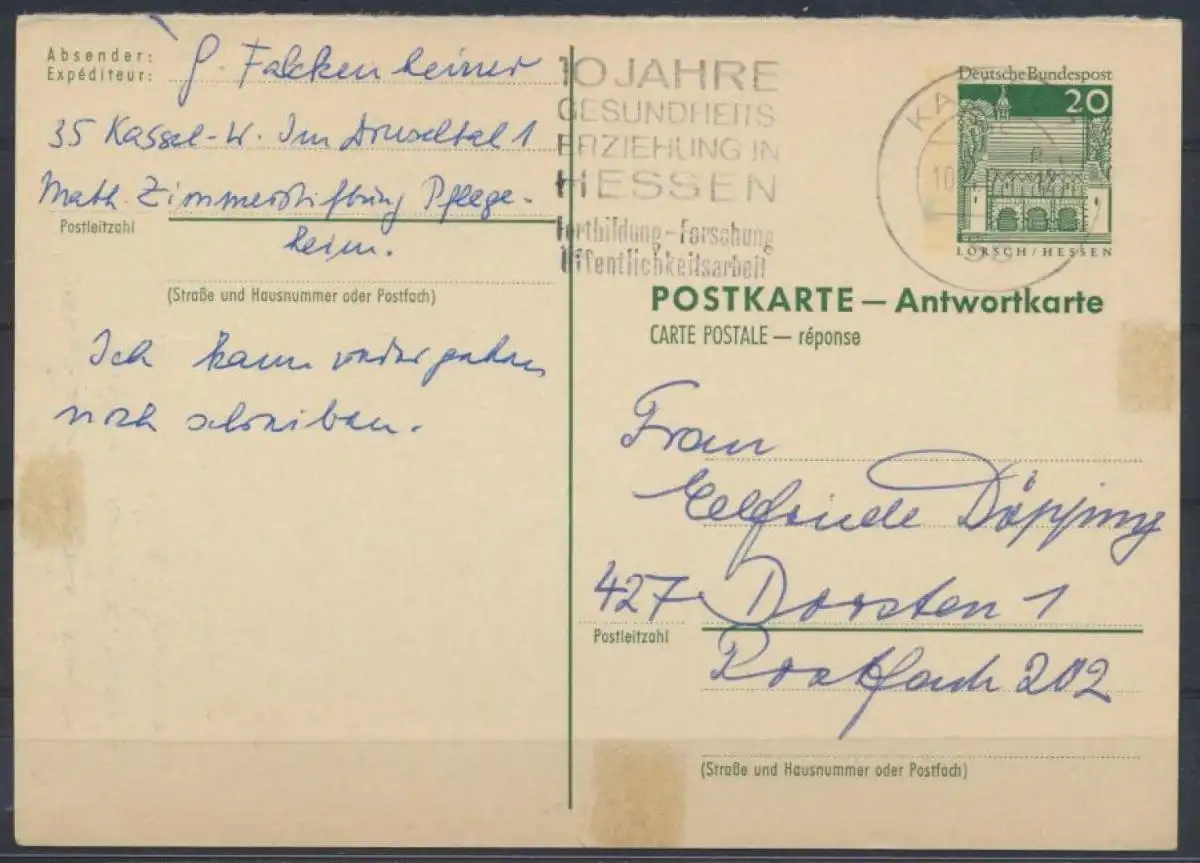 Absender:
Expéditeur:
P. Falckenheiner
35 Kassel-W. Im Druseltal 1
Math. Zimmerstiftung Pflege-
Postleitzahl
heim.
(Straße und Hausnummer oder Postfach)
Ich kann
noch schreiben.
10 JAHRE
GESUNDHEITS
ERZIEHUNG IN
HESSEN
Fortbildung-Forschung
Öffentlichkeitsarbeit
Deutsche Bundespost
20
LORSCH/HESSEN
POSTKARTE — Antwortkarte
CARTE POSTALE — réponse
Frau
Elfriede Döpping
427 Dorsten 1
Postleitzahl
Postfach 202
(Straße und Hausnummer oder Postfach)